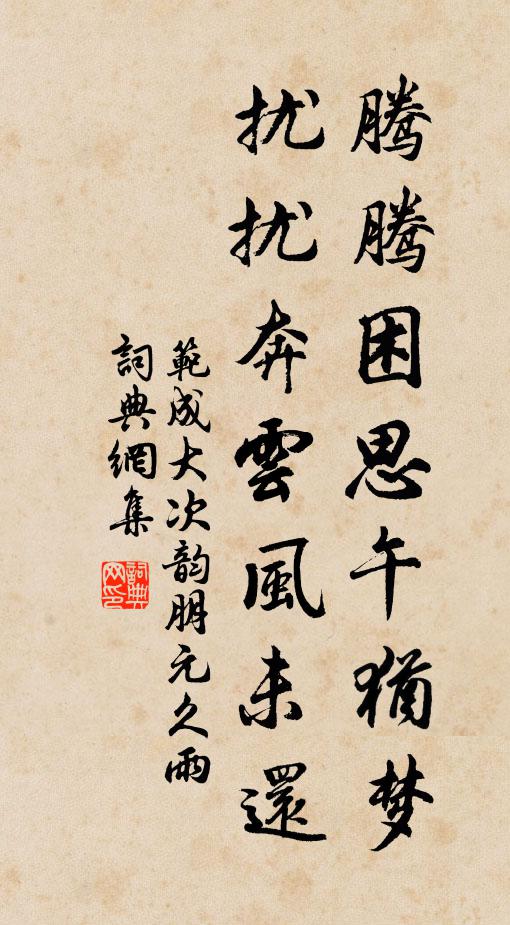 騰騰困思午猶梦
扰扰奔雲風未還
範成大次韵朋元久雨
詞典網集
詞典
网印